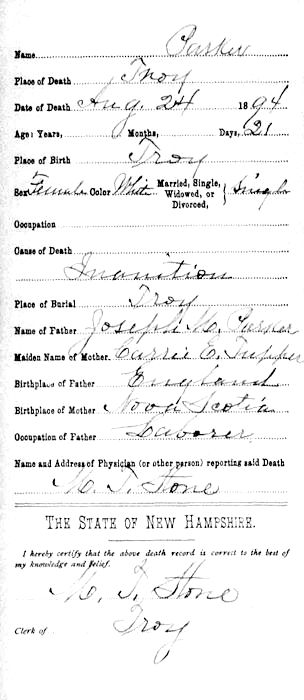 Name Parker
Place of Death Troy
Date of Death Aug. 24 1894
Age: Years, Months, Days, 21
Place of Birth Troy
Sex Female Color White Married, Single, Widowed, or Divorced, } Single
Occupation
Cause of Death
Inanition
Place of Burial Troy
Name of Father Joseph M. Parker
Maiden Name of Mother Carrie E. Tupper
Birthplace of Father England
Birthplace of Mother Nova Scotia
Occupation of Father Laborer
Name and Address of Physician (or other person) reporting said Death
M. T. Stone
THE STATE OF NEW HAMPSHIRE.
I hereby certify that the above death record is correct to the best of
my knowledge and belief.
M. T. Stone
Clerk of Troy